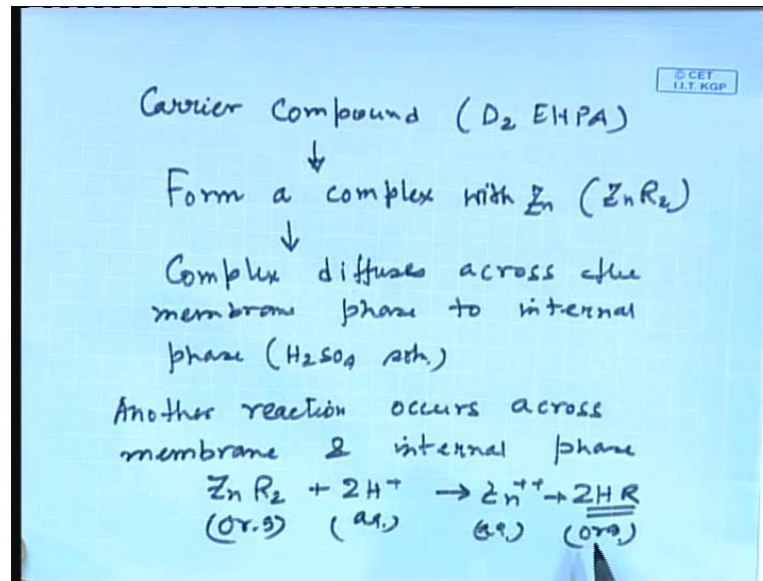 © CET
I.I.T. KGP
Carrier Compound (D₂ EHPA)
↓
Form a complex with Zn (ZnR₂)
↓
Complex diffuses across the
membrane phase to internal
phase (H₂SO₄ soln.)
Another reaction occurs across
membrane & internal phase
ZnR₂ + 2H⁺ → Zn⁺⁺ + 2HR
(Org) (aq.) (aq.) (org.)